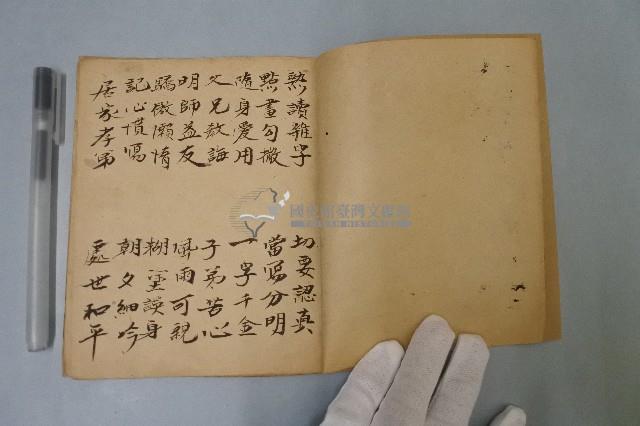 熟讀雜字 切要認真
點畫勾撇 當寫分明
隨身愛用 一字千金
父兄教誨 子弟苦心
明師益友 風雨可親
驕傲懶惰 糊塗誤身
記心慣寫 朝夕細吟
居家孝弟 處世和平
國史館臺灣文獻館
TAIWAN HISTORICA